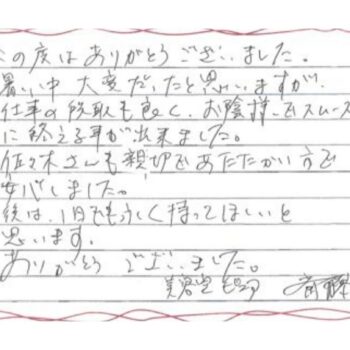 の度はありがとうございました。
暑い中大変だったと思いますが、
仕事の段取も良く、お陰様でスムーズ
に終える事が出来ました。
佐々木さんも親切であたたかい方で
安心しました。
後は、1日でも永く持ってほしいと
思います。
ありがとうございました。
美容室